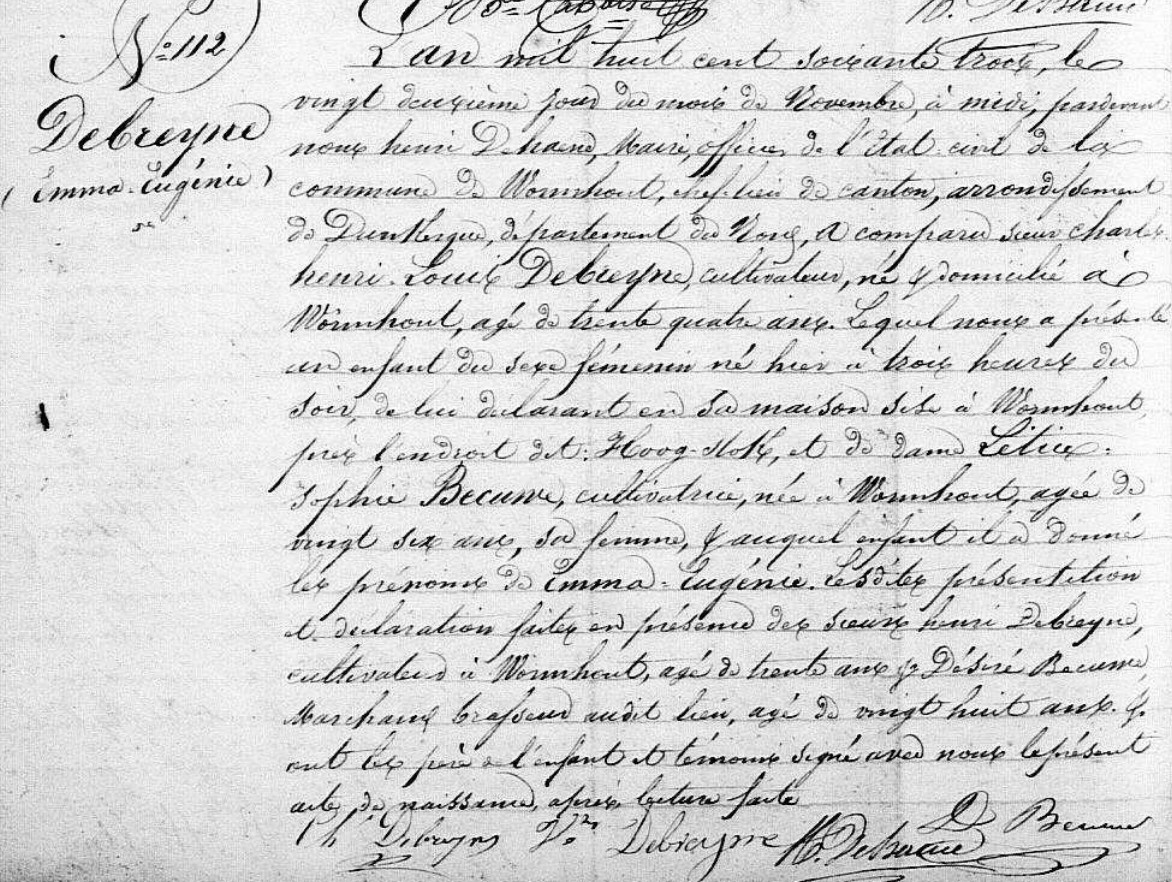 N° 112
Debreyne
(Emma-Eugénie)
L'an mil huit cent soixante trois, le
vingt deuxième jour du mois de Novembre, à midi, pardevant
nous henri Dehaene, Maire, officier de l'Etat-civil de la
commune de Wormhout, chef-lieu de canton, arrondissement
de Dunkerque, département du Nord, a comparu sieur charles
henri-Louis Debreyne, cultivateur, né & domicilié à
Wormhout, agé de trente quatre ans. Lequel nous a présenté
un enfant du sexe fémenin né hier à trois heures du
soir, de lui déclarant en sa maison sise à Wormhout,
près l'endroit dit: Hoog-, et de dame
Sophie Becuwe, cultivatrice, née à Wormhout, agée de
vingt six ans, sa femme, & auquel enfant il a donné
les prénoms de Emma-Eugénie. Lesdites présentation
et déclaration faites en présence des sieurs henri Debreyne,
cultivateur à Wormhout, agé de trente ans & Désiré Becuwe,
Marchand brasseur audit lieu, agé de vingt huit ans. &
ont les père de l'enfant et témoins signé avec nous le présent
acte de naissance, après lecture faite
Ch Debreyne Debreyne H. Dehaene D Becuwe